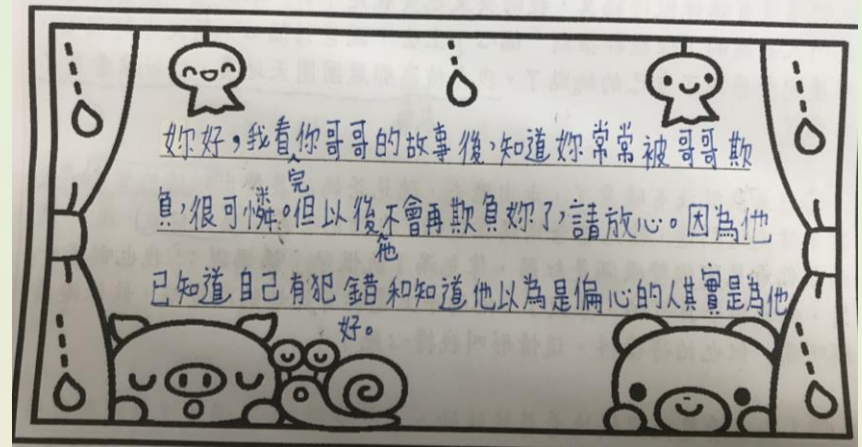 妳好，我看完你哥哥的故事後，知道妳常常被哥哥欺
負，很可憐。但以後他不會再欺負妳了，請放心。因為他
已知道自己有犯錯和知道他以為是偏心的人其實是為他
好。